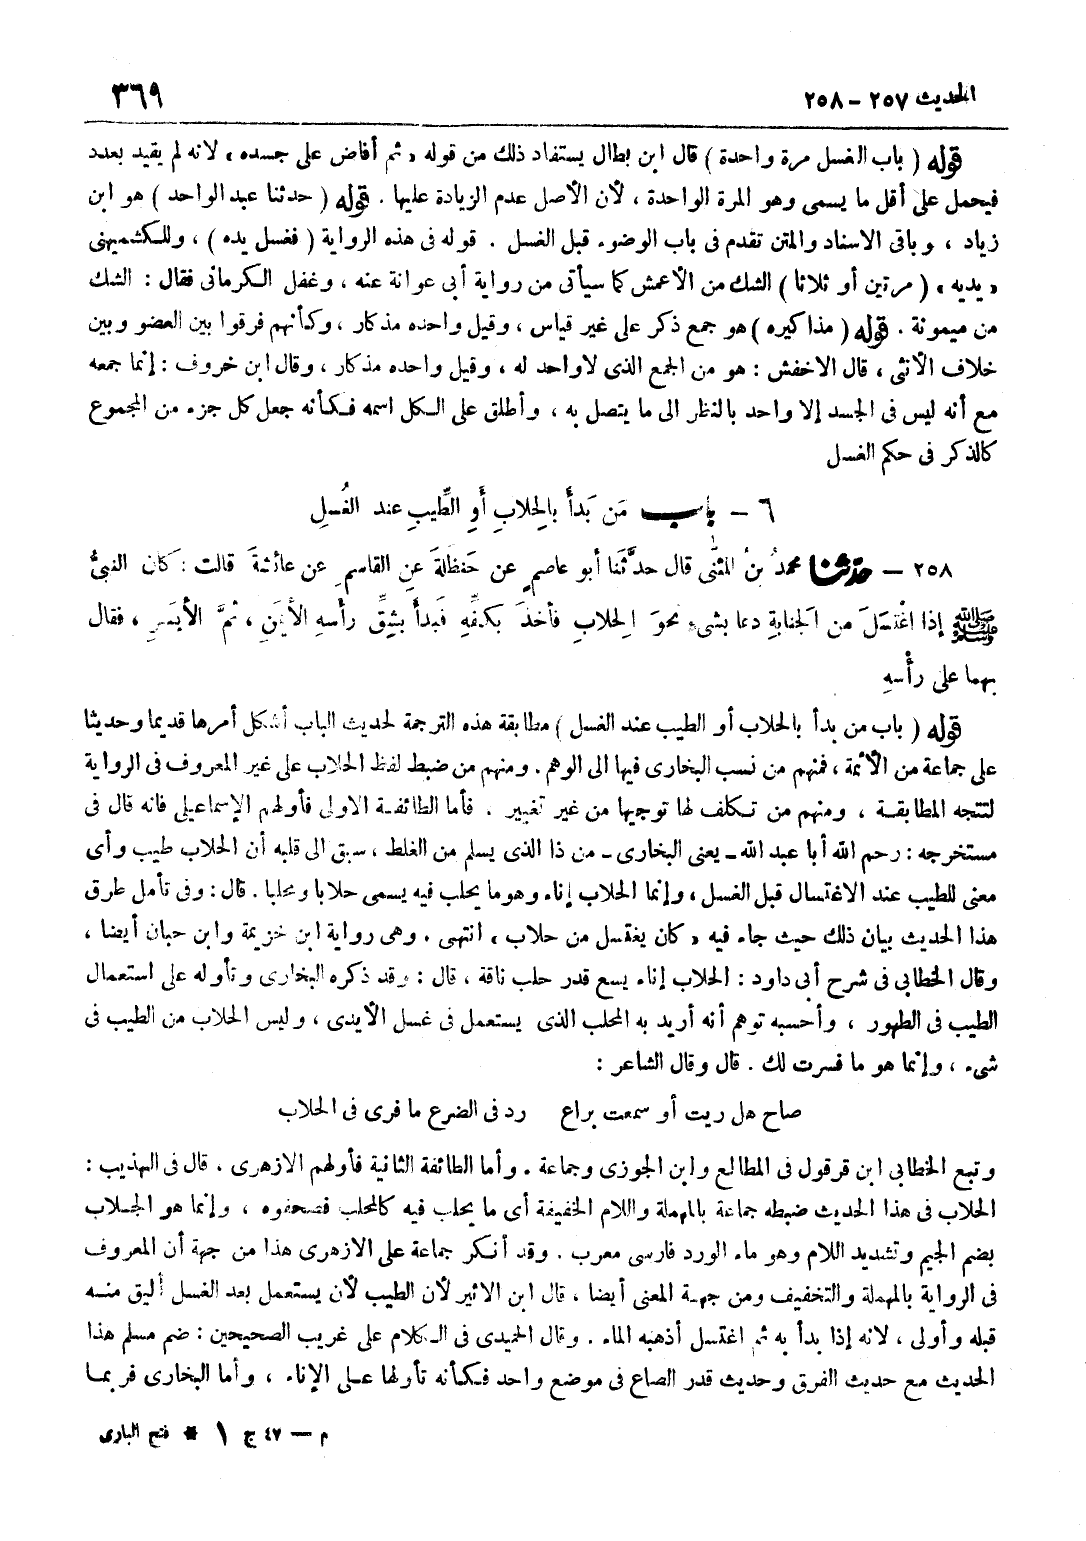 الحديث ٢٥٧ – ٢٥٨
٣٦٩
قوله ( باب الغسل مرة واحدة ) قال ابن بطال يستفاد ذلك من قوله « ثم أفاض على جسده » لانه لم يقيد بعدد
فيحمل على أقل ما يسمى وهو المرة الواحدة ، لأن الأصل عدم الزيادة عليها . قوله ( حدثنا عبد الواحد ) هو ابن
زياد ، وباقى الاسناد والمتن تقدم فى باب الوضوء قبل الغسل . قوله فى هذه الرواية ( فغسل يده ) ، وللكشميهنى
« يديه » ( مرتين أو ثلاثا ) الشك من الأعمش كما سيأتى من رواية أبى عوانة عنه ، وغفل الكرمانى فقال : الشك
من ميمونة . قوله ( مذاكيره ) هو جمع ذكر على غير قياس ، وقيل واحده مذكار ، وكأنهم فرقوا بين العضو وبين
خلاف الأنثى ، قال الاخفش : هو من الجمع الذى لا واحد له ، وقيل واحده مذكار ، وقال ابن خروف : إنما جمعه
مع أنه ليس فى الجسد إلا واحد بالنظر الى ما يتصل به ، وأطلق على الكل اسمه فكأنه جعل كل جزء من المجموع
كالذكر فى حكم الغسل
٦ – باب مَن بَدأَ بالحِلابِ أَوِ الطِّيبِ عند الغُسلِ
٢٥٨ – حدثنا محمدُ بنُ المثنَّى قال حدَّثَنا أبو عاصمٍ عن حَنظلةَ عنِ القاسمِ عن عائشةَ قالت : كان النبيُّ
ﷺ إذا اغْتسَلَ من الجنابةِ دعا بشىءٍ نحوَ الحِلابِ فأخذَ بكفِّهِ فبَدأَ بشِقِّ رأسهِ الأيمَنِ ، ثمَّ الأيسَرِ ، فقال
بهما على رأْسهِ
قوله ( باب من بدأ بالحلاب أو الطيب عند الغسل ) مطابقة هذه الترجمة لحديث الباب أشكل أمرها قديما وحديثا
على جماعة من الأئمة ، فمنهم من نسب البخارى فيها الى الوهم . ومنهم من ضبط لفظ الحلاب على غير المعروف فى الرواية
لتتجه المطابقة ، ومنهم من تكلف لها توجيها من غير تغيير . فأما الطائفة الاولى فأولهم الإسماعيلى فانه قال فى
مستخرجه : رحم الله أبا عبد الله – يعنى البخارى – من ذا الذى يسلم من الغلط ، سبق الى قلبه أن الحلاب طيب وأى
معنى للطيب عند الاغتسال قبل الغسل ، وإنما الحلاب إناء وهو ما يحلب فيه يسمى حلابا ومحلبا . قال : وفى تأمل طرق
هذا الحديث بيان ذلك حيث جاء فيه « كان يغتسل من حلاب » انتهى . وهى رواية ابن خزيمة وابن حبان أيضا ،
وقال الخطابى فى شرح أبى داود : الحلاب إناء يسع قدر حلب ناقة ، قال : وقد ذكره البخارى وتأوله على استعمال
الطيب فى الطهور ، وأحسبه توهم أنه أريد به المحلب الذى يستعمل فى غسل الأيدى ، وليس الحلاب من الطيب فى
شىء ، وإنما هو ما فسرت لك . قال وقال الشاعر :
صاح هل ريت أو سمعت براع رد فى الضرع ما قرى فى الحلاب
وتبع الخطابى ابن قرقول فى المطالع وابن الجوزى وجماعة . وأما الطائفة الثانية فأولهم الازهرى ، قال فى التهذيب :
الحلاب فى هذا الحديث ضبطه جماعة بالمهملة واللام الخفيفة أى ما يحلب فيه كالمحلب فصحفوه ، وإنما هو الجلاب
بضم الجيم وتشديد اللام وهو ماء الورد فارسى معرب . وقد أنكر جماعة على الازهرى هذا من جهة أن المعروف
فى الرواية بالمهملة والتخفيف ومن جهة المعنى أيضا ، قال ابن الاثير لأن الطيب لأن يستعمل بعد الغسل أليق منه
قبله وأولى ، لانه إذا بدأ به ثم اغتسل أذهبه الماء . وقال الحميدى فى الكلام على غريب الصحيحين : ضم مسلم هذا
الحديث مع حديث الفرق وحديث قدر الصاع فى موضع واحد فكأنه تأولها على الإناء ، وأما البخارى فربما
م — ٤٧ ج ١ * فتح البارى